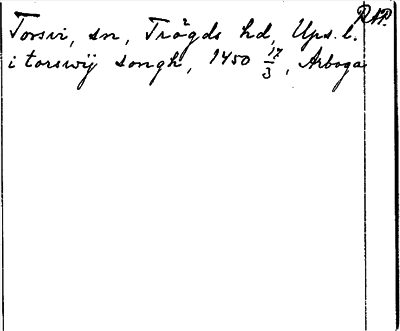 RAP.
Torsvi, sn, Trögds hd, Ups. l.
i torswij songh, 1450 17/3, Arboga